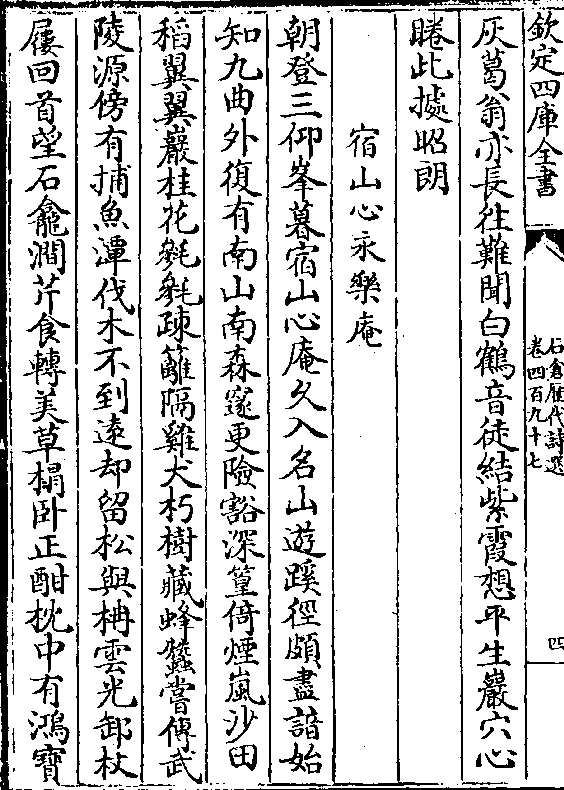 欽定四庫全書
石倉歷代詩選
卷四百九十七
四
灰葛翁亦長往難聞白鶴音徒結紫霞想平生巖穴心
睠此據昭朗
宿山心永樂庵
朝登三仰峯暮宿山心庵久入名山遊蹊徑頗盡諳始
知九曲外復有南山南森邃更險豁深篁倚煙嵐沙田
稻翼翼巖桂花毿毿疎籬隔雞犬朽樹藏蜂蠶嘗傳武
陵源傍有捕魚潭伐木不到遠却留松與枏雲光卸杖
屨回首望石龕澗芹食轉美草榻卧正酣枕中有鴻寶